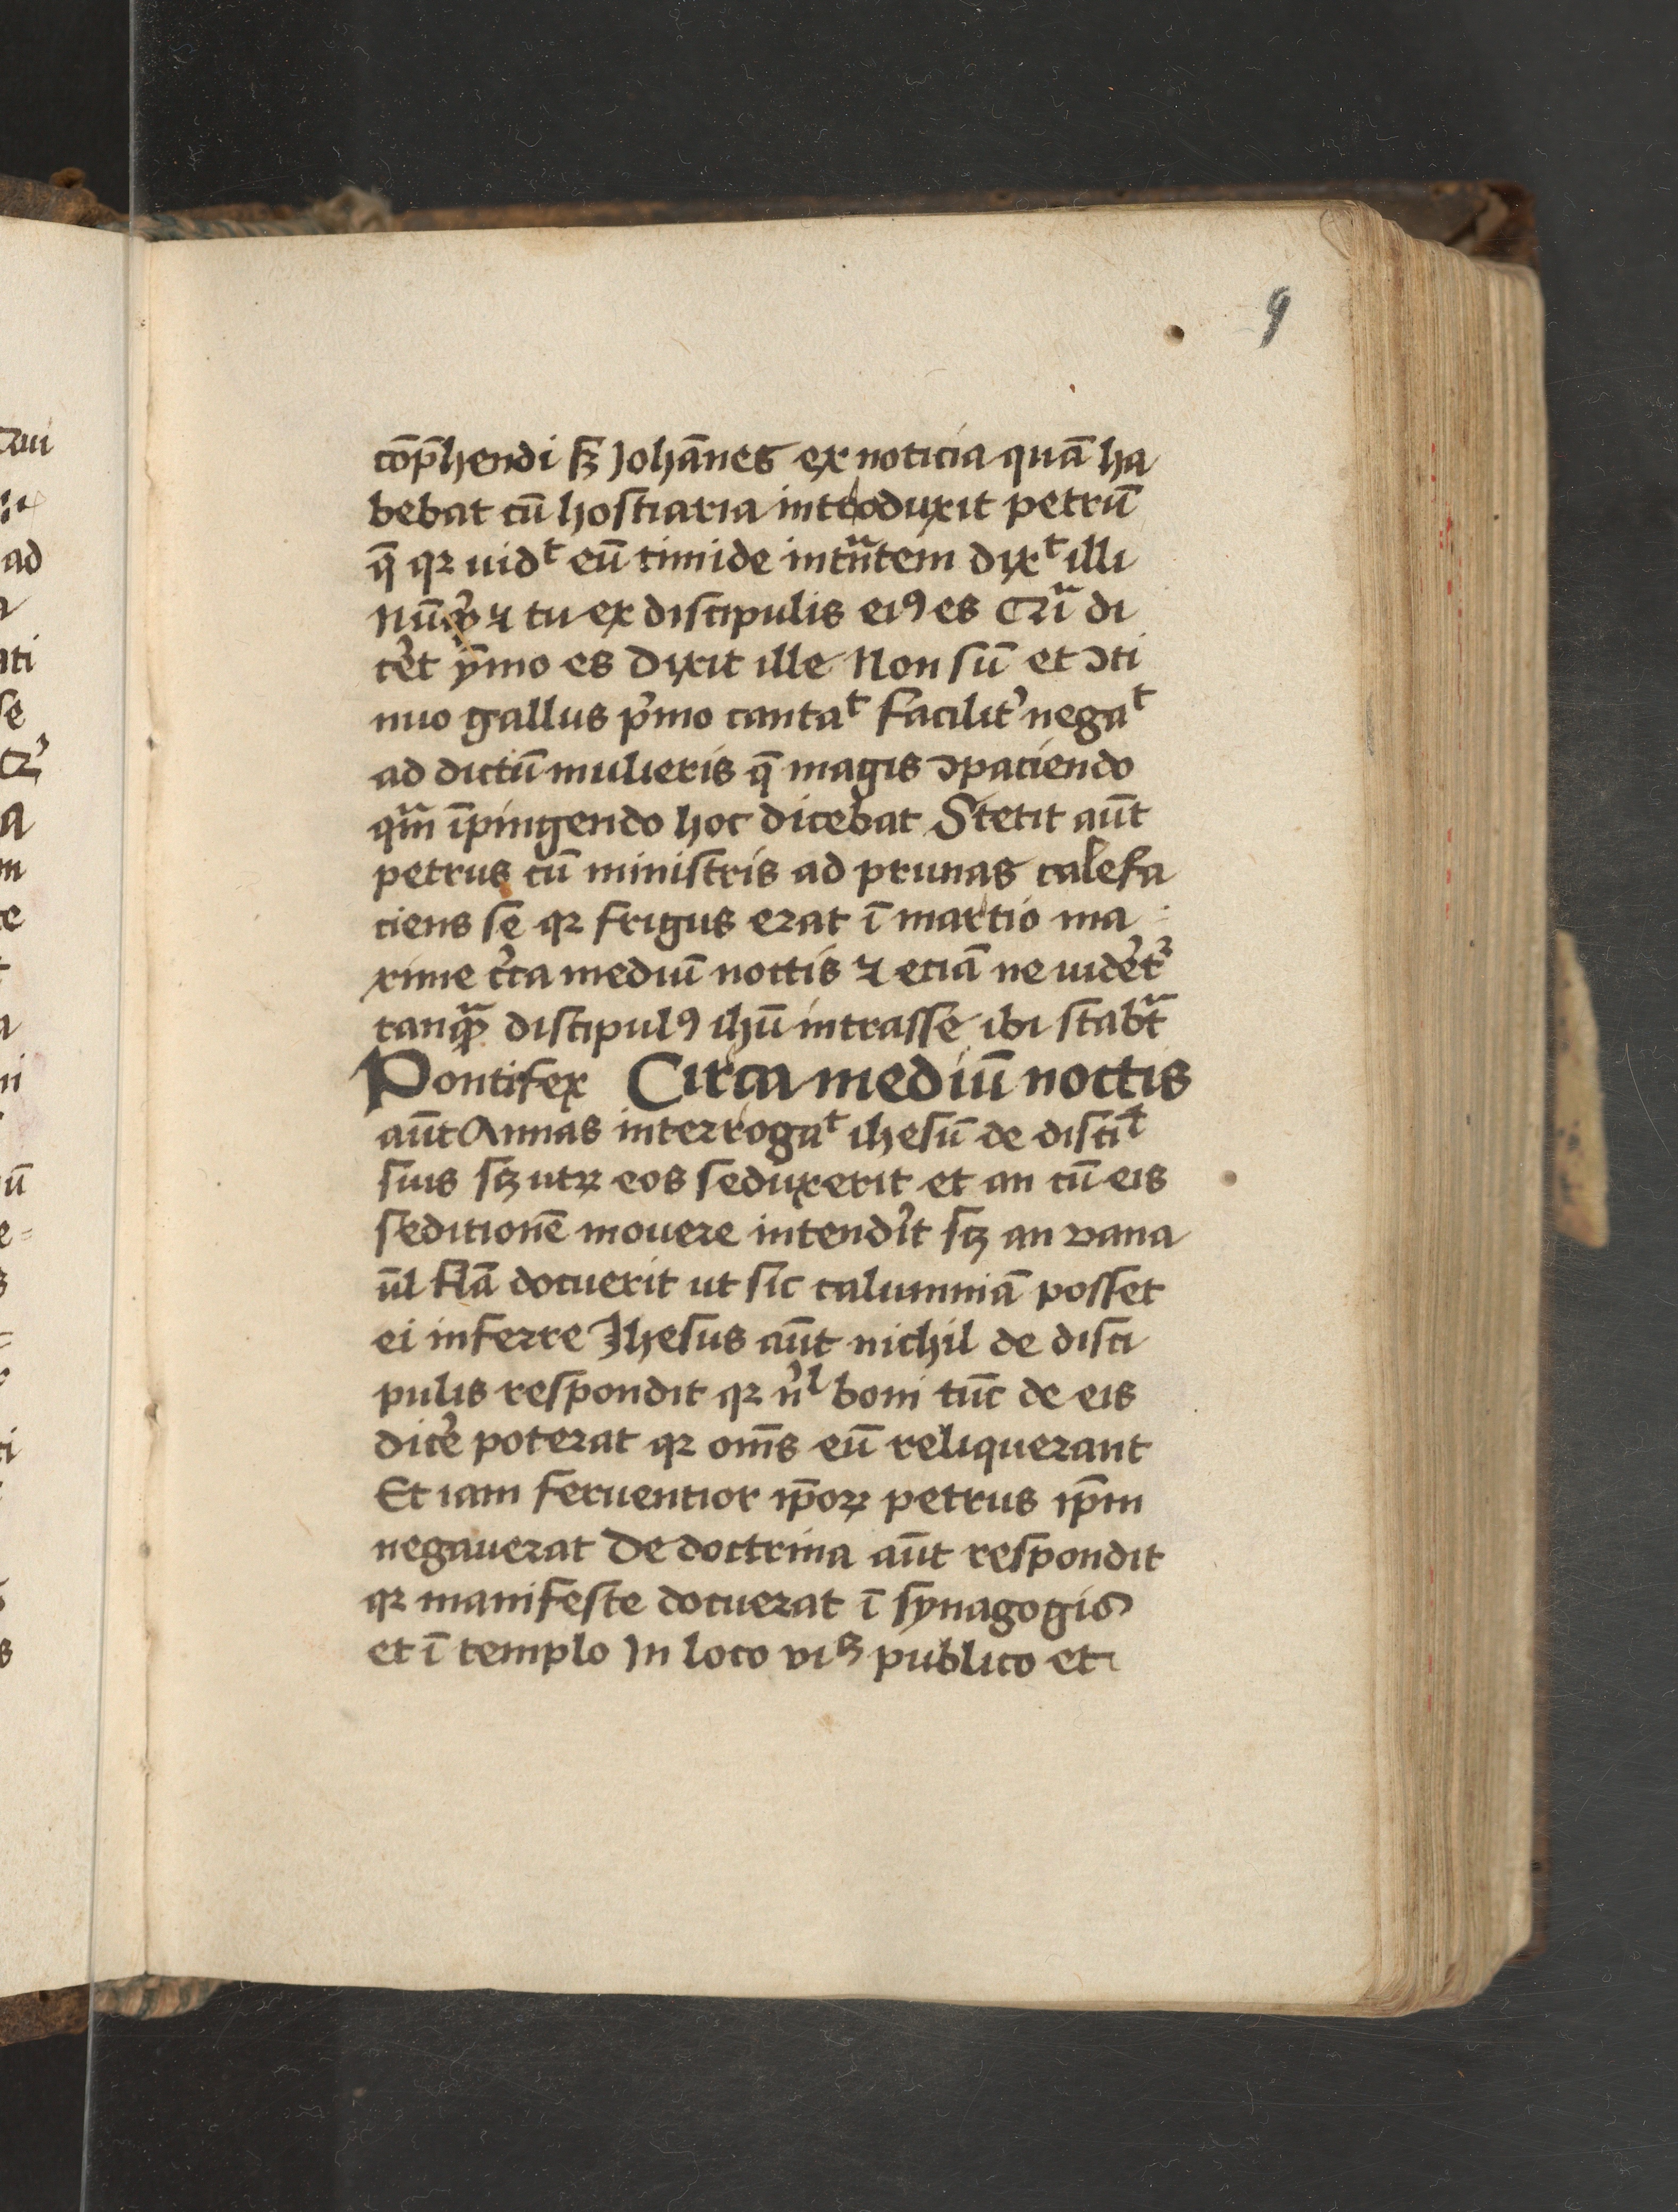 9
cōp̄hendi sꝫ Johānes ex noticia quā ha
bebat cū hostiaria introduxit petrū
q̄ qꝛ uidᵗ eū timide intᷓntem dixᵗ illi
Nūqͥd ⁊ tu ex discipulis eiꝯ es Cᷓ di
c̓et ȳmo es Dixit ille Non sū et ɔti
nuo gallus p̓mo cantaᵗ facilit̓ negaᵗ
ad dictū mulieris q̄ magis ɔpaciendo
qᷓm īpingendo hoc dicebat Stetit aūt
petrus cū ministris ad prunas calefa
ciens se qꝛ frigus erat ī martio ma
xime c̓ca mediū noctis ⁊ eciā ne uidēt̓
tanqᷓꝫ discipulꝯ ihū intrasse ibi stabᷓt
Pontifex Circa mediū noctis
aūt Annas interrogaᵗ ihesū de disciᵗ
suis sꝫ utꝝ eos seduxerit et an cū eis
seditionē mouere intend̓it sꝫ an vana
ūl flā docuerit ut sic calumniā posset
ei inferre Jhesus aūt nichil de disci
pulis respondit qꝛ n̓l boni tūc de eis
dic̓e poterat qꝛ om̄s eū reliquerant
Et iam feruentior ip̄oꝝ petrus ip̄m
negauerat De doctrina aūt respondit
qꝛ manifeste docuerat ī synagogis
et ī templo In loco viꝫ publico et